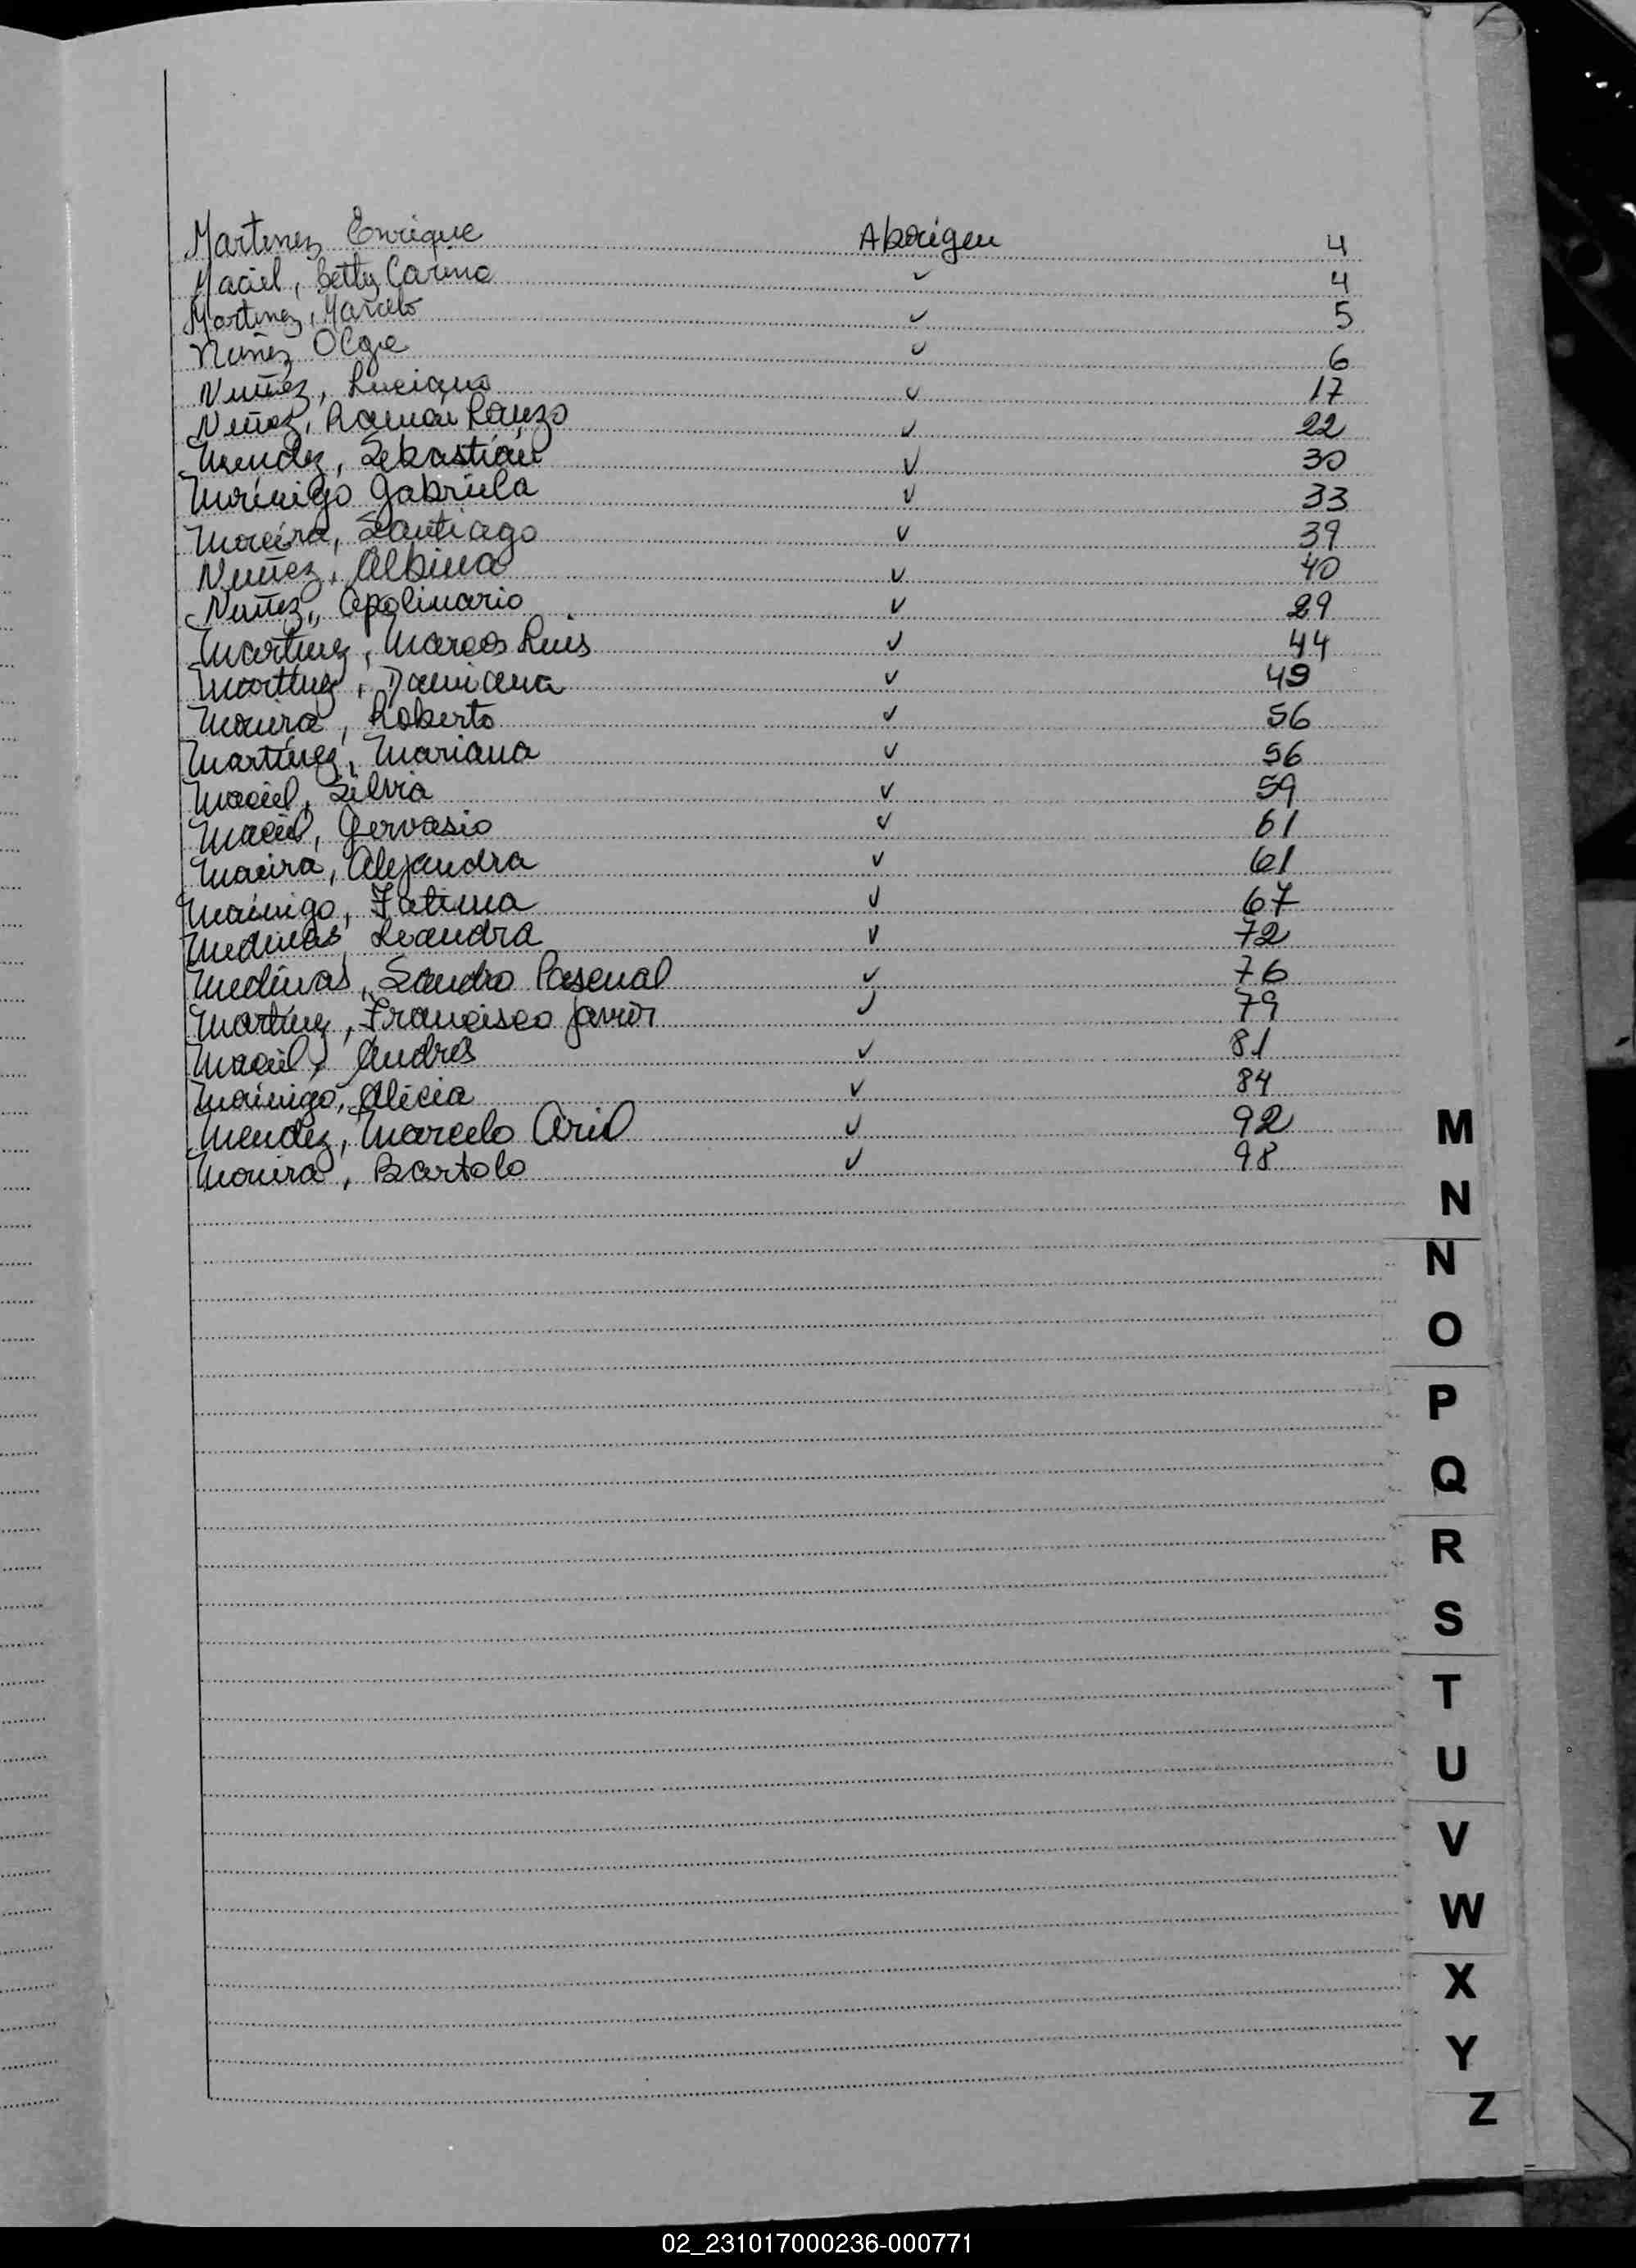 Martinez Enrique Aborigen 4
Maciel, Betty Carina ✓ 4
Martinez, Marcelo ✓ 5
Nuñez Olga ✓ 6
Nuñez, Luciano ✓ 17
Nuñez, Ramón Lorenzo ✓ 22
Mendez, Sebastián ✓ 30
Morinigo Gabriela ✓ 33
Moreira, Santiago ✓ 39
Nuñez, Albina ✓ 40
Nuñez, Apolinario ✓ 29
Martinez, Marcos Luis ✓ 44
Martinez, Damiana ✓ 49
Moreira, Roberto ✓ 56
Martínez, Mariana ✓ 56
Maciel, Silvia ✓ 59
Maciel, Gervasio ✓ 61
Moreira, Alejandra ✓ 61
Morinigo, Fatima ✓ 67
Medinas, Leandra ✓ 72
Medinas, Sandro Pascual ✓ 76
Martinez, Francisco Javier ✓ 79
Maciel, Andres ✓ 81
Morinigo, Alicia ✓ 84
Mendez, Marcelo Ariel ✓ 92
Moreira, Bartolo ✓ 98
M
N
N
O
P
Q
R
S
T
U
V
W
X
Y
Z
02_231017000236-000771